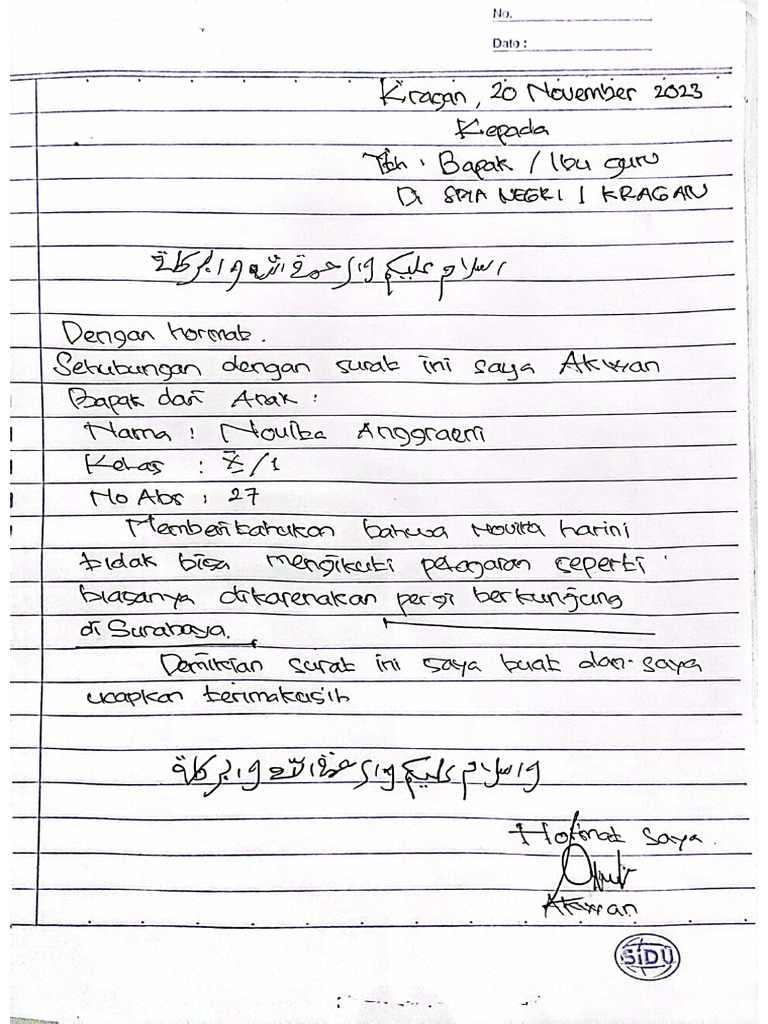 No.
Date :
Kragan, 20 November 2023
Kepada
Yth : Bapak / Ibu guru
Di SMA NEGRI 1 KRAGAN
اسلام عليكم وار حمة الله و ابركاتة
Dengan hormat.
Sehubungan dengan surat ini saya Akwan
Bapak dari Anak :
Nama : Novita Anggraeni
Kelas : X/1
No Abs : 27
Memberitahukan bahwa Novita harini
tidak bisa mengikuti pelajaran seperti
biasanya dikarenakan pergi berkunjung
di Surabaya.
Demikian surat ini saya buat dan saya
ucapkan terimakasih
و اسلام عليكم وار حمة الله و ابركاتة
Hormat saya.
Akwan
SiDU